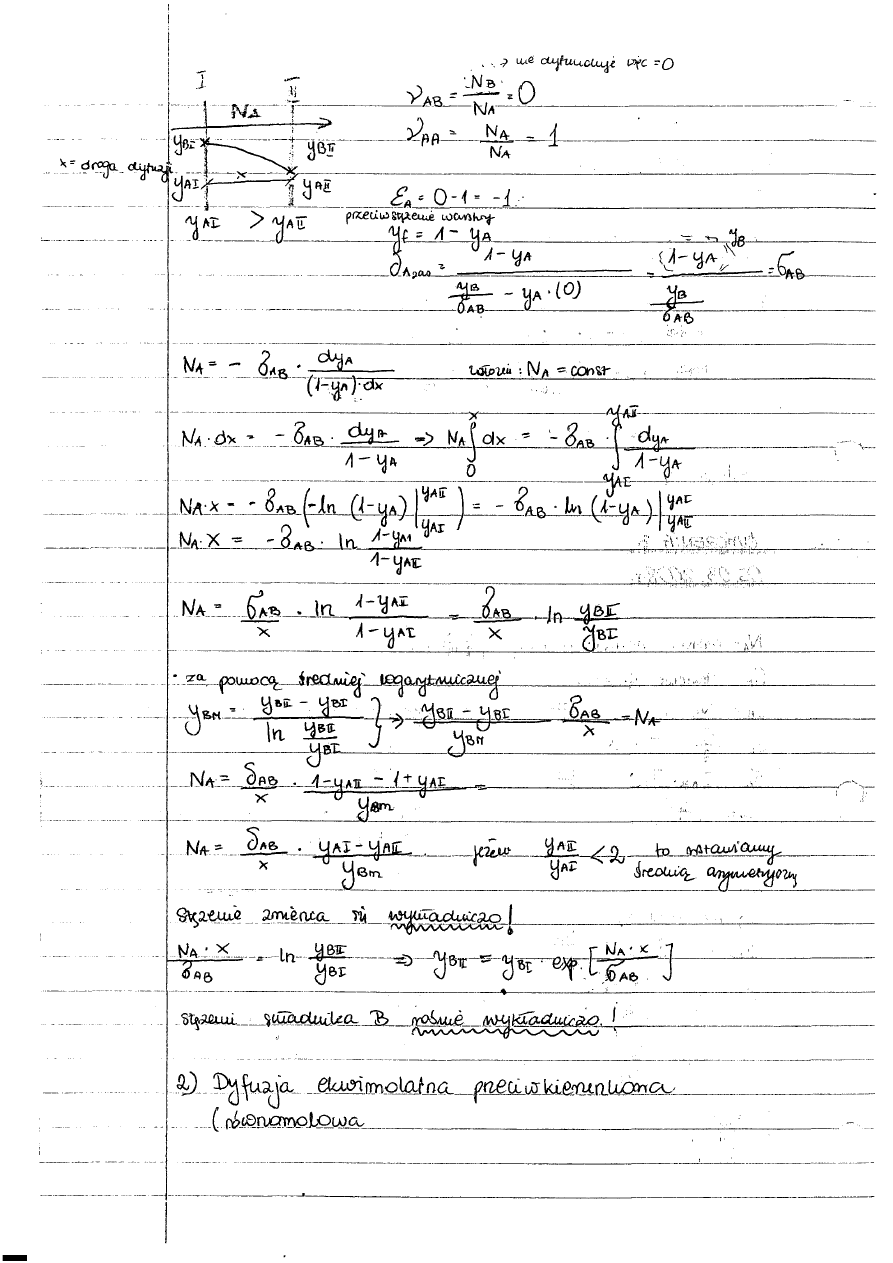 → nie dyfunduje więc = 0
I II
ν_AB = N_B / N_A = 0
N_A
ν_AA = N_A / N_A = 1
y_BI y_BII
x = droga dyfuzji
x
y_AI y_AII
ε_A = 0 - 1 = -1
y_AI > y_AII
przeciwstężenie warstwy
y_f = 1 - y_A
δ_A = (1 - y_A) / (y_B/δ_AB - y_A · (0)) = (1 - y_A) / (y_B/δ_AB) = δ_AB
= y_B
N_A = - δ_AB · dy_A / ((1-y_A)·dx) : N_A = const
N_A · dx = - δ_AB · dy_A / (1 - y_A) => N_A ∫_0^x dx = - δ_AB · ∫_{y_AI}^{y_AII} dy_A / (1-y_A)
N_A·x = - δ_AB (-ln (1-y_A) |_{y_AI}^{y_AII}) = - δ_AB · ln (1-y_A) |_{y_AII}^{y_AI}
N_A·x = - δ_AB · ln (1-y_AI) / (1-y_AII)
N_A = δ_AB / x · ln (1-y_AII) / (1-y_AI) = δ_AB / x · ln y_BII / y_BI
· za pomocą średniej logarytmicznej
y_BM = (y_BII - y_BI) / (ln y_BII / y_BI) } => (y_BII - y_BI) / y_BM δ_AB / x = N_A
N_A = δ_AB / x · (1-y_AII - 1 + y_AI) / y_Bm =
N_A = δ_AB / x · (y_AI - y_AII) / y_Bm jeżeli y_AII / y_AI < 2 to wstawiamy
średnią arytmetyczną
stężenie zmienia się wykładniczo!
N_A · x / δ_AB = ln y_BII / y_BI => y_BII = y_BI · exp. [N_A · x / δ_AB]
składnika B rośnie wykładniczo!
2) Dyfuzja ekwimolarna przeciwkierunkowa
(równomolowa